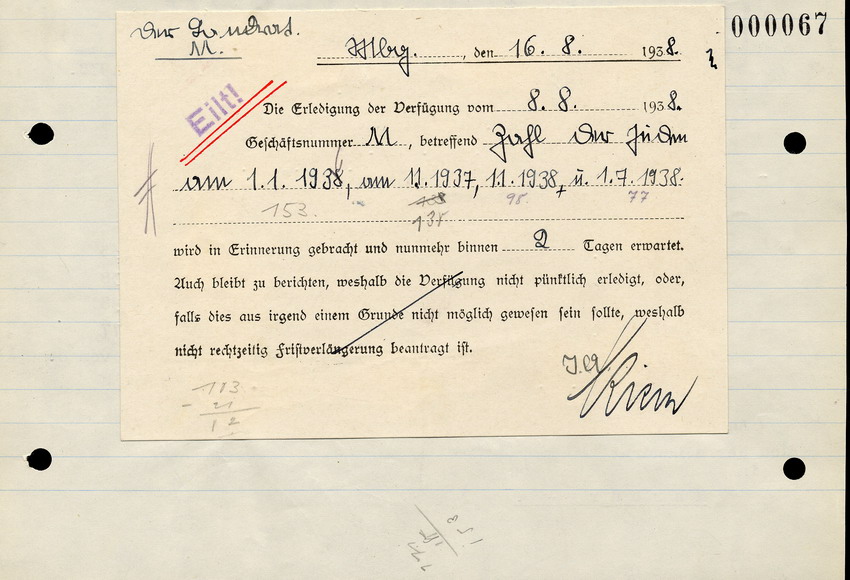 Der Landrat.
M.
000067
Mbg. , den 16. 8. 1938.
Eilt!
Die Erledigung der Verfügung vom 8. 8. 1938.
Geschäftsnummer M, betreffend Zahl der Juden
am 1.1. 1938, am 1.1.1937, 1.1.1938, u. 1.7.1938.
153. 138 98. 77
135
wird in Erinnerung gebracht und nunmehr binnen 2 Tagen erwartet.
Auch bleibt zu berichten, weshalb die Verfügung nicht pünktlich erledigt, oder,
falls dies aus irgend einem Grunde nicht möglich gewesen sein sollte, weshalb
nicht rechtzeitig Fristverlängerung beantragt ist.
J.A.